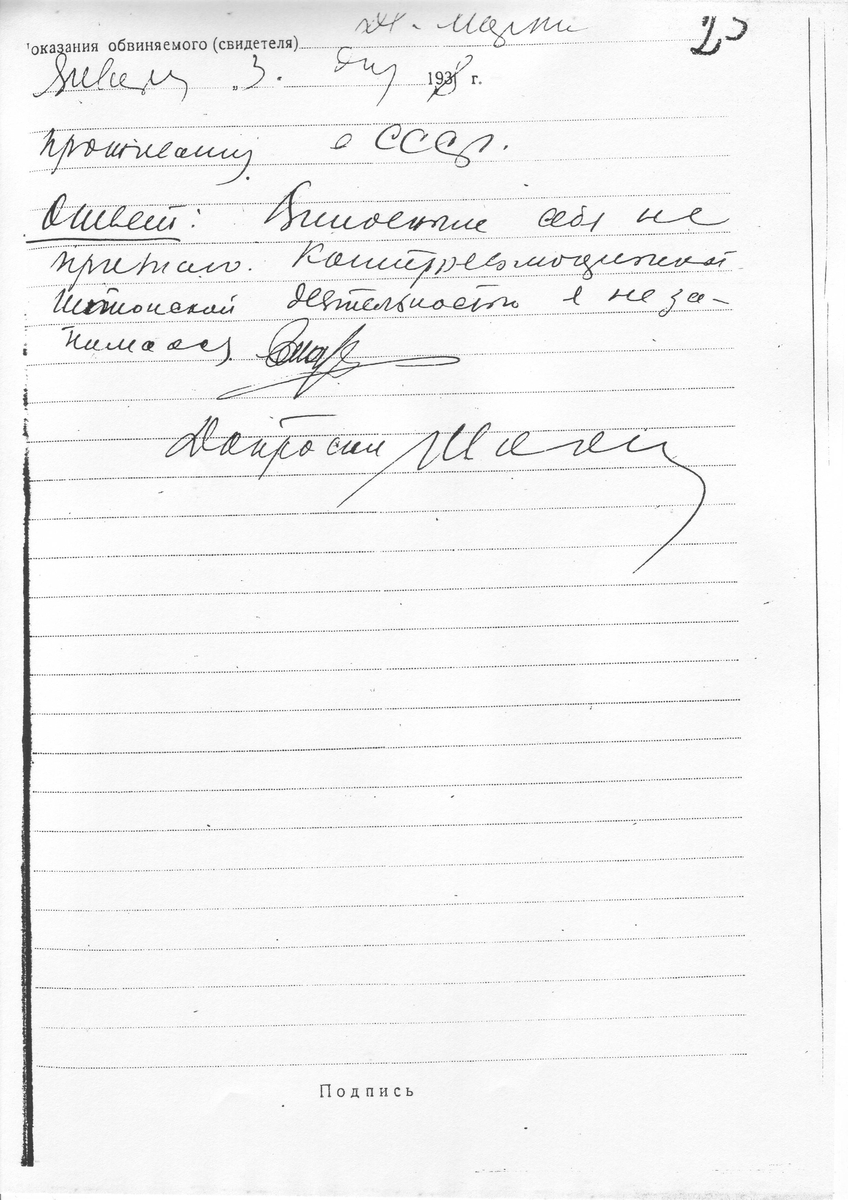 23
оказания обвиняемого (свидетеля)
„3. 1938 г.
проживания в СССР.
Ответ: Виновным себя не
признаю. Контрреволюционной
шпионской деятельностью я не за-
нимался.
Допросил
Подпись